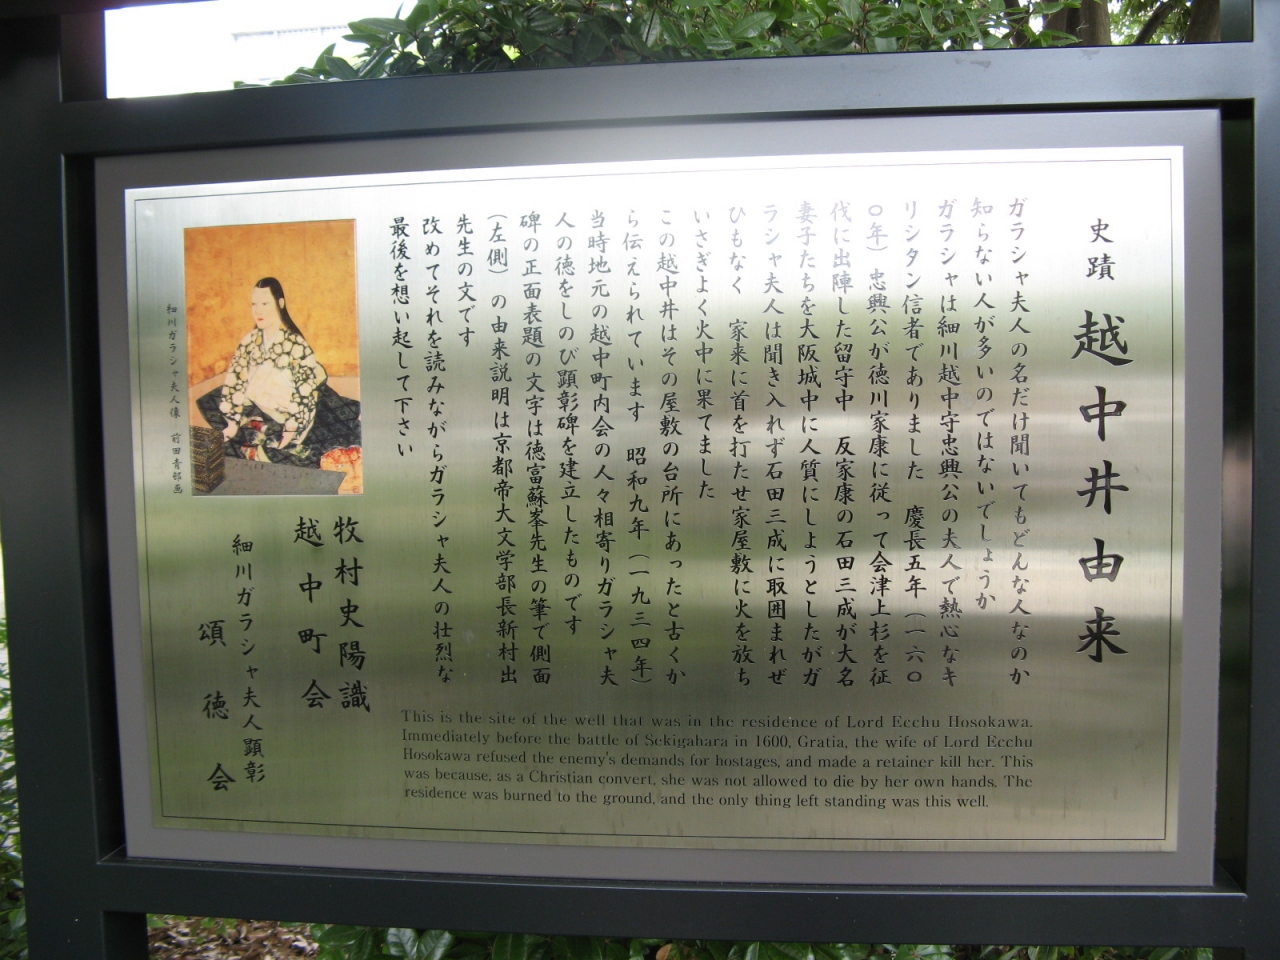 史蹟 越中井由来
ガラシャ夫人の名だけ聞いてもどんな人なのか
知らない人が多いのではないでしょうか
ガラシャは細川越中守忠興公の夫人で熱心なキ
リシタン信者でありました 慶長五年（一六〇
〇年）忠興公が徳川家康に従って会津上杉を征
伐に出陣した留守中 反家康の石田三成が大名
妻子たちを大阪城中に人質にしようとしたがガ
ラシャ夫人は聞き入れず石田三成に取囲まれぜ
ひもなく 家来に首を打たせ家屋敷に火を放ち
いさぎよく火中に果てました
この越中井はその屋敷の台所にあったと古くか
ら伝えられています 昭和九年（一九三四年）
当時地元の越中町内会の人々相寄りガラシャ夫
人の徳をしのび顕彰碑を建立したものです
碑の正面表題の文字は徳富蘇峯先生の筆で側面
（左側）の由来説明は京都帝大文学部長新村出
先生の文です
改めてそれを読みながらガラシャ夫人の壮烈な
最後を想い起して下さい
牧村史陽識
越中町会
細川ガラシャ夫人顕彰
頌徳会
細川ガラシャ夫人像 前田青邨画
This is the site of the well that was in the residence of Lord Ecchu Hosokawa.
Immediately before the battle of Sekigahara in 1600, Gratia, the wife of Lord Ecchu
Hosokawa refused the enemy's demands for hostages, and made a retainer kill her. This
was because, as a Christian convert, she was not allowed to die by her own hands. The
residence was burned to the ground, and the only thing left standing was this well.